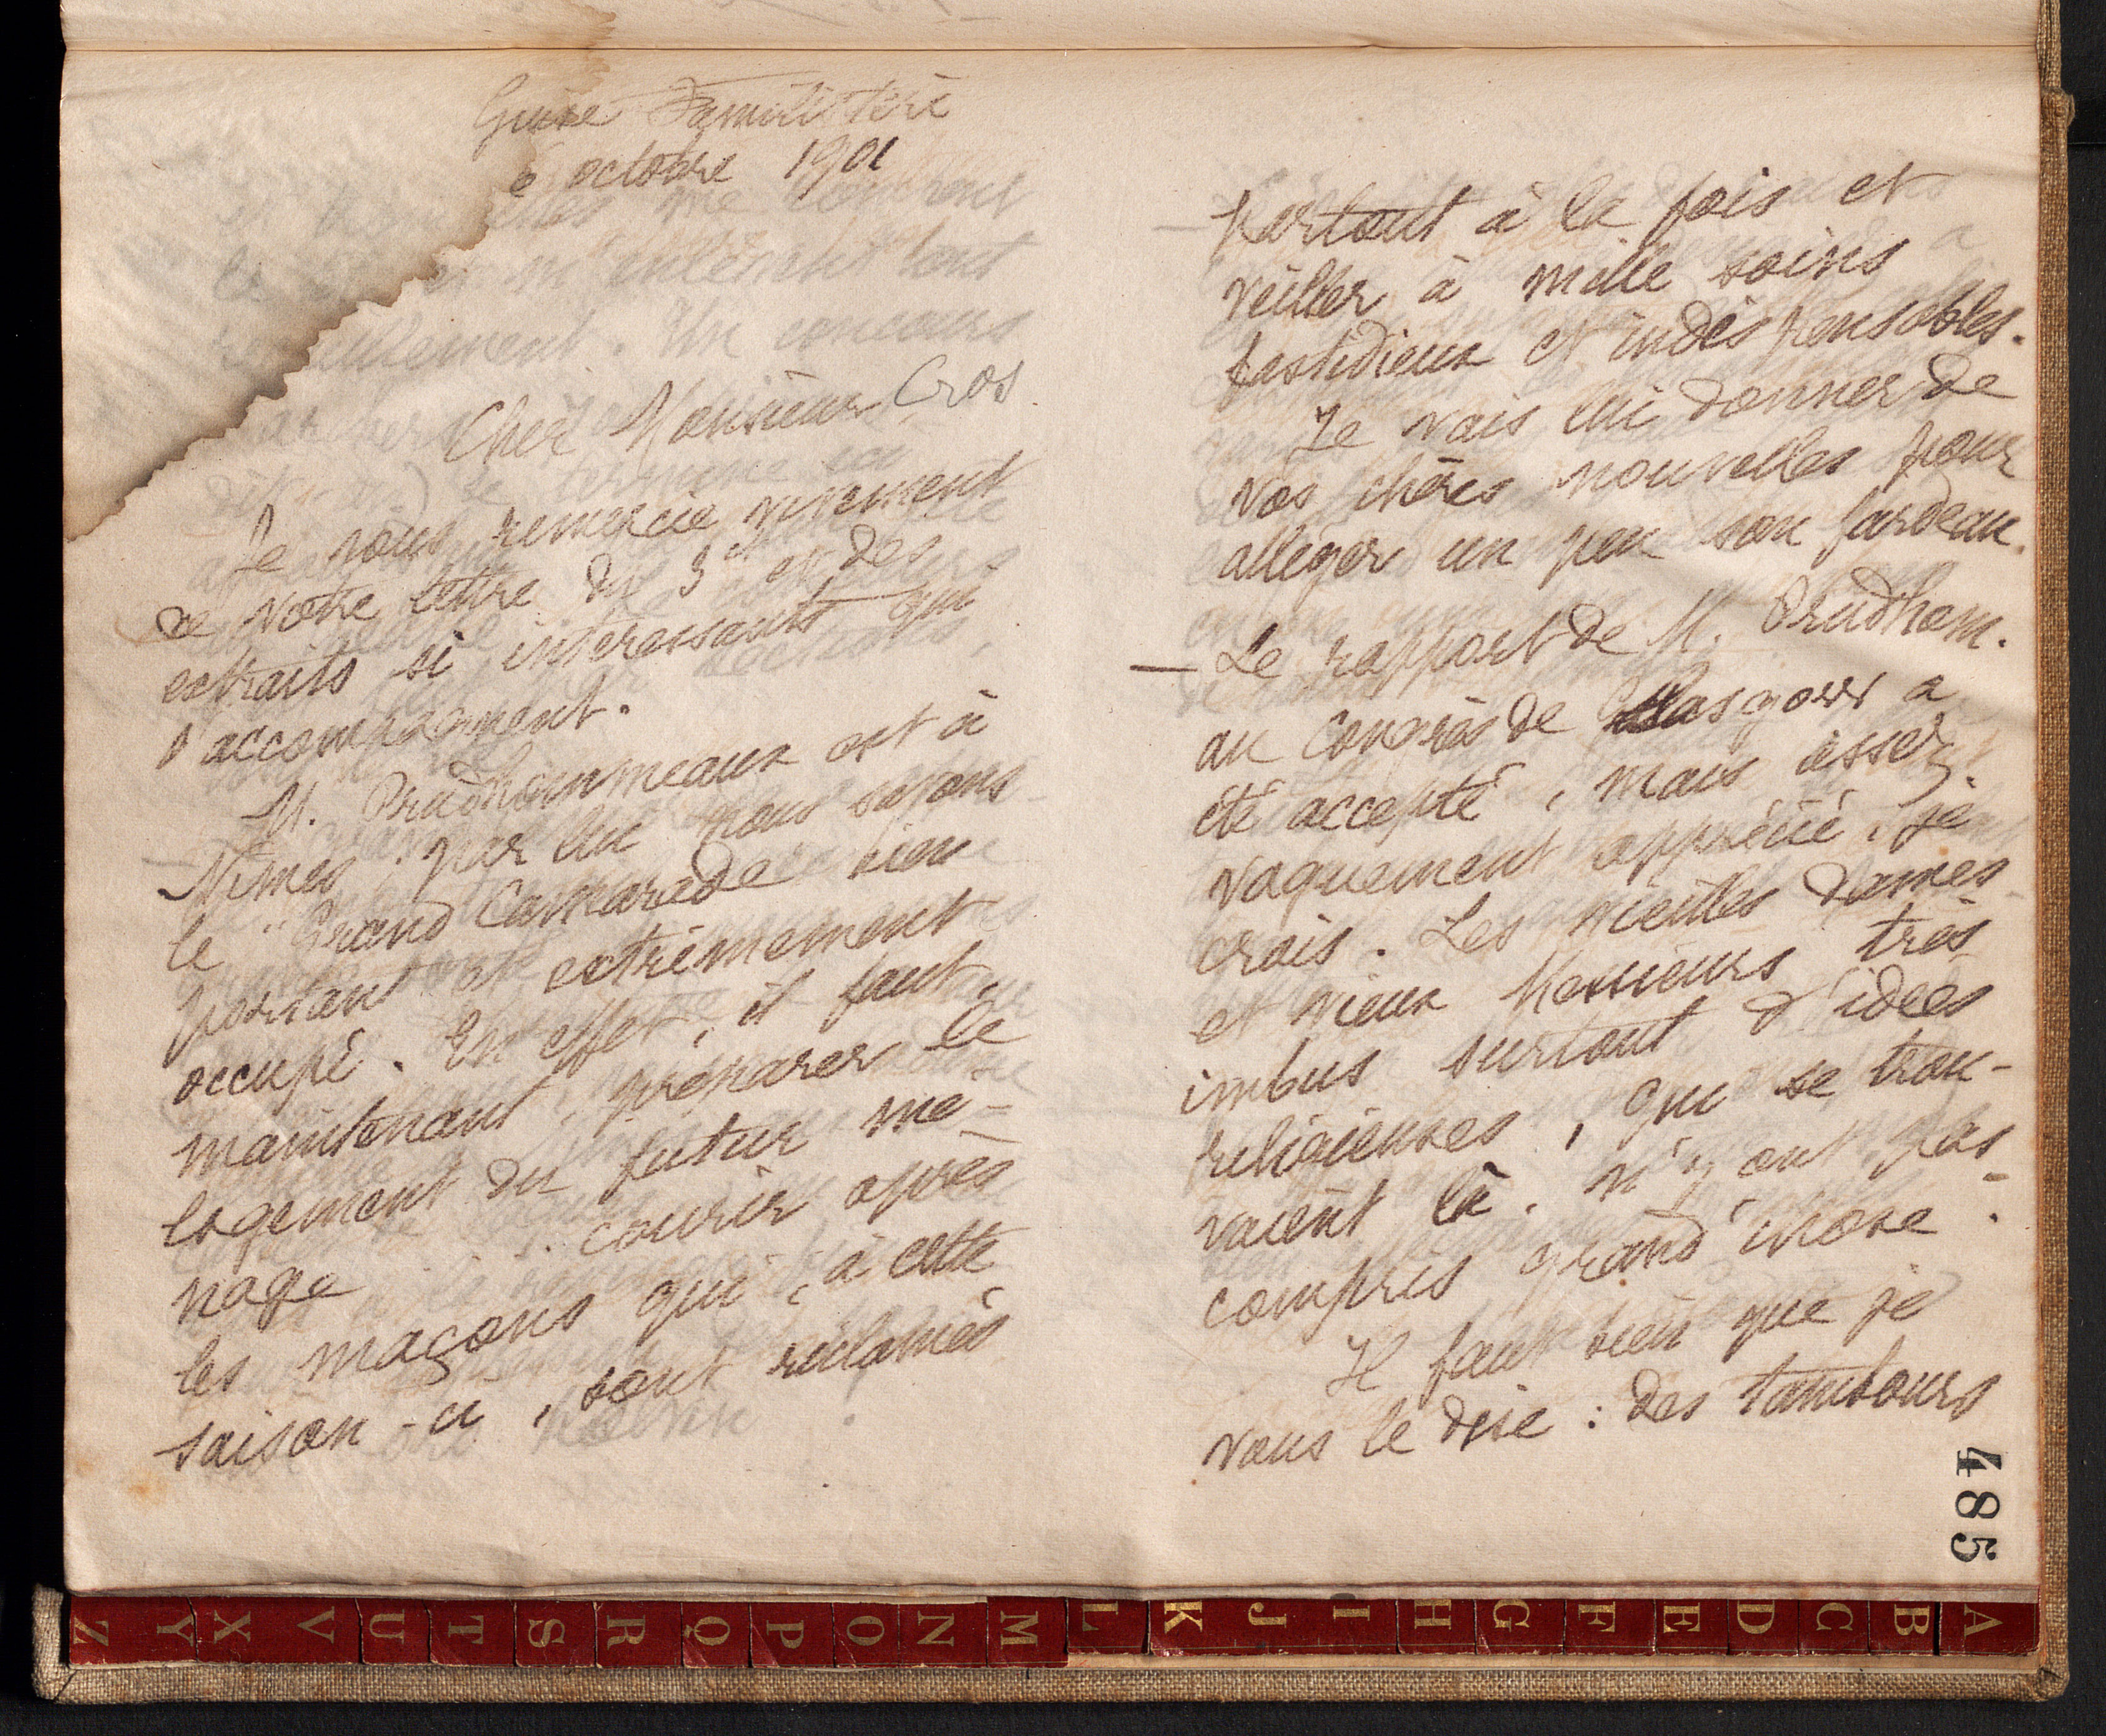 Guise Familistère
6 octobre 1901
Cher Monsieur Cros
Je vous remercie vivement
de votre lettre du 3 ct et des
extraits si intéressants qui
l'accompagnent.
M. Prudhommeaux est à
Nîmes ; par lui nous savons
le "Grand Camarade" bien
portant et extrêmement
occupé. En effet, il faut
maintenant préparer le
logement du futur mé-
nage courir après
les maçons qui, à cette
saison-ci, sont réclamés
partout à la fois et
veiller à mille soins
fastidieux et indispensables.
Je vais lui donner de
vos chères nouvelles pour
alléger un peu son fardeau.
— Le rapport de M. Prudhom.
au Congrès de Glasgow a
été accepté, mais assez
vaguement apprécié, je
crois. Les vieilles dames
et vieux Messieurs très
imbus surtout d'idées
religieuses, qui se trou-
vaient là, n'y ont pas
compris grand'chose.
Il faut bien que je
vous le dise : des tambours
485
Z Y X V U T S R Q P O N M L K J I H G F E D C B A